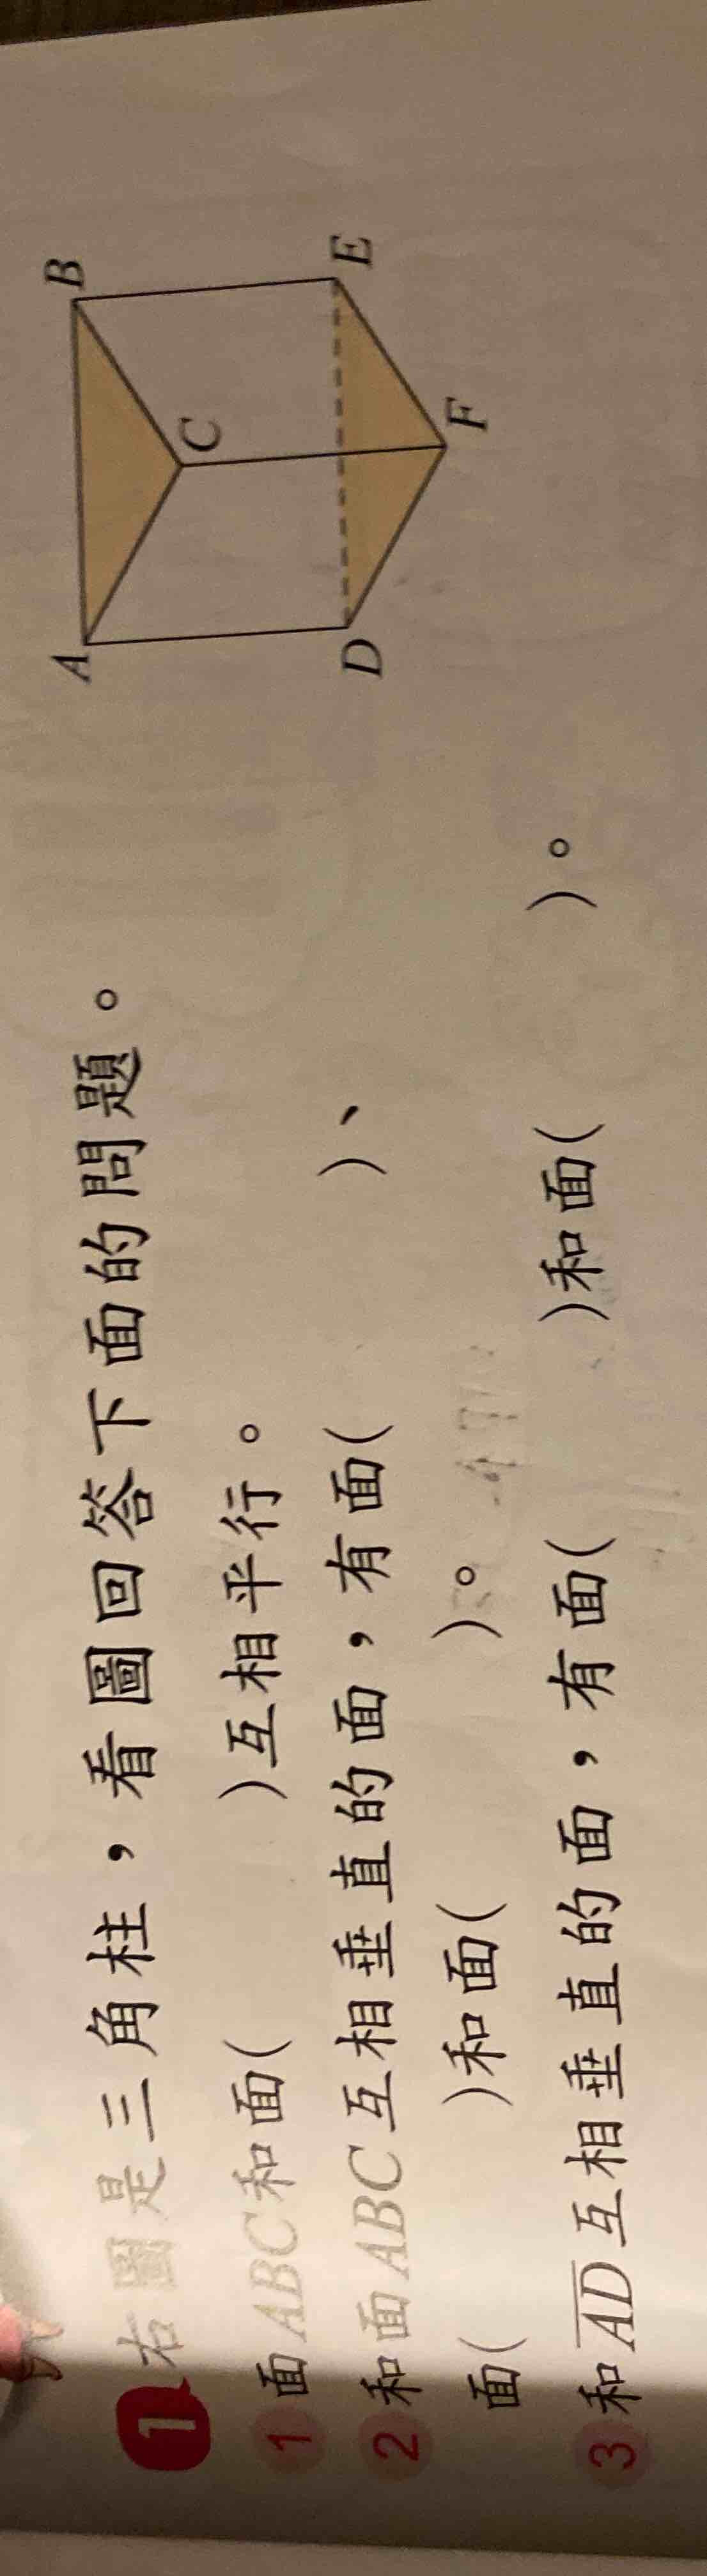 1 右圖是三角柱，看圖回答下面的問題。
1 面ABC和面(　　)互相平行。
2 和面ABC互相垂直的面，有面(　　)、
面(　　)和面(　　)。
3 和A̅D̅互相垂直的面，有面(　　)和面(　　)。
A
B
C
D
E
F